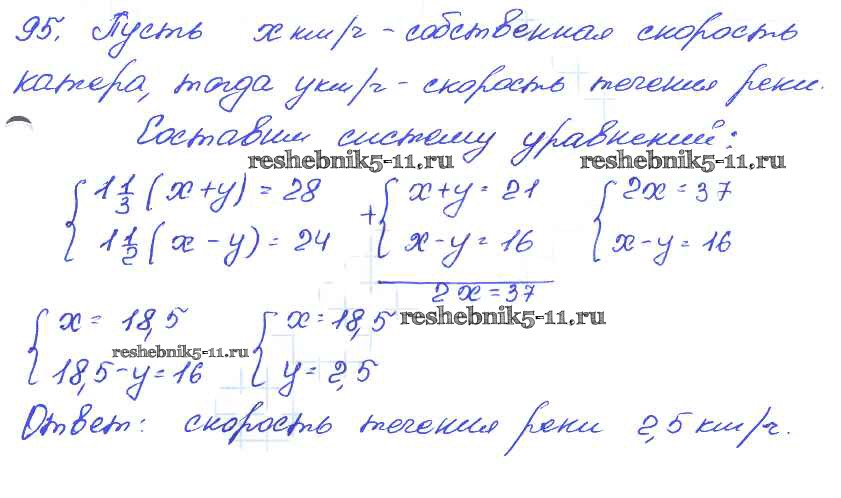 95. Пусть x км/ч - собственная скорость
катера, тогда y км/ч - скорость течения реки.
Составим систему уравнений:
reshebnik5-11.ru reshebnik5-11.ru
{ 1 1/3 (x+y) = 28 + { x+y = 21 { 2x = 37
1 1/2 (x - y) = 24 x - y = 16 x - y = 16
2x = 37
{ x = 18,5 { x = 18,5 reshebnik5-11.ru
reshebnik5-11.ru
18,5 - y = 16 y = 2,5
Ответ: скорость течения реки 2,5 км/ч.